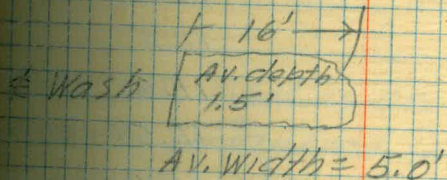 16'
℄ Wash Av. depth
1.5'
Av. width = 5.0'